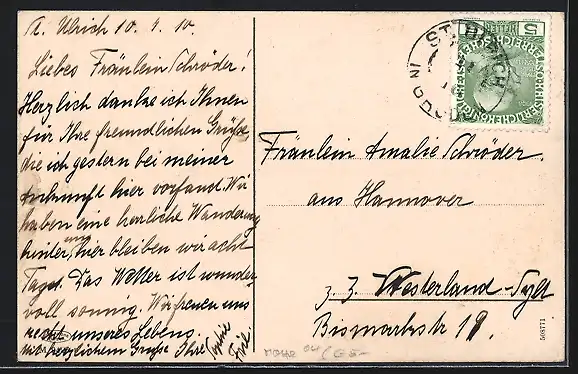 St. Ulrich 10. 9. 10.
Liebes Fräulein Schröder!
Herzlich danke ich Ihnen
für Ihre freundlichen Grüße,
die ich gestern bei meiner
Ankunft hier vorfand. Wir
haben eine herrliche Wanderung
hinter uns, hier bleiben wir acht
Tage. Das Wetter ist wunder-
voll sonnig. Wir freuen uns
recht unseres Lebens.
Mit herzlichem Gruße Ihre
Fräulein Amalie Schröder.
aus Hannover
z. Z. Westerland-Sylt
Bismarckstr 19.
ST. ULRICH
5
HELLER
508771